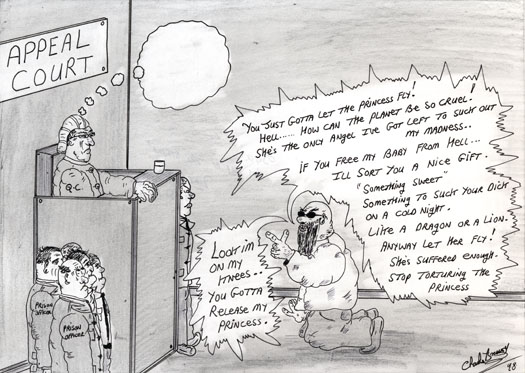 APPEAL
COURT
Q.C.
PRISON
OFFICER
PRISON
OFFICER
YOU JUST GOTTA LET THE PRINCESS FLY!
HELL...... HOW CAN THE PLANET BE SO CRUEL!
SHE'S THE ONLY ANGEL I'VE GOT LEFT TO SUCK OUT
MY MADNESS..
IF YOU FREE MY BABY FROM HELL...
I'LL SORT YOU A NICE GIFT.
"SOMETHING SWEET"
SOMETHING TO SUCK YOUR DICK
ON A COLD NIGHT.
LIKE A DRAGON OR A LION.
ANYWAY LET HER FLY!
SHE'S SUFFERED ENOUGH.
STOP TORTURING THE
PRINCESS
LOOK IM
ON MY
KNEES..
YOU GOTTA
RELEASE MY
PRINCESS.
Charlie Bronson
98